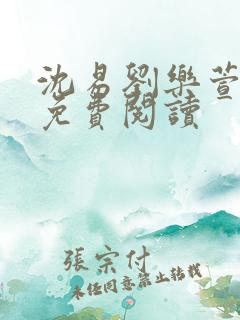 沈易劉樂萱
免費閱讀
張宗付
未经同意禁止转载